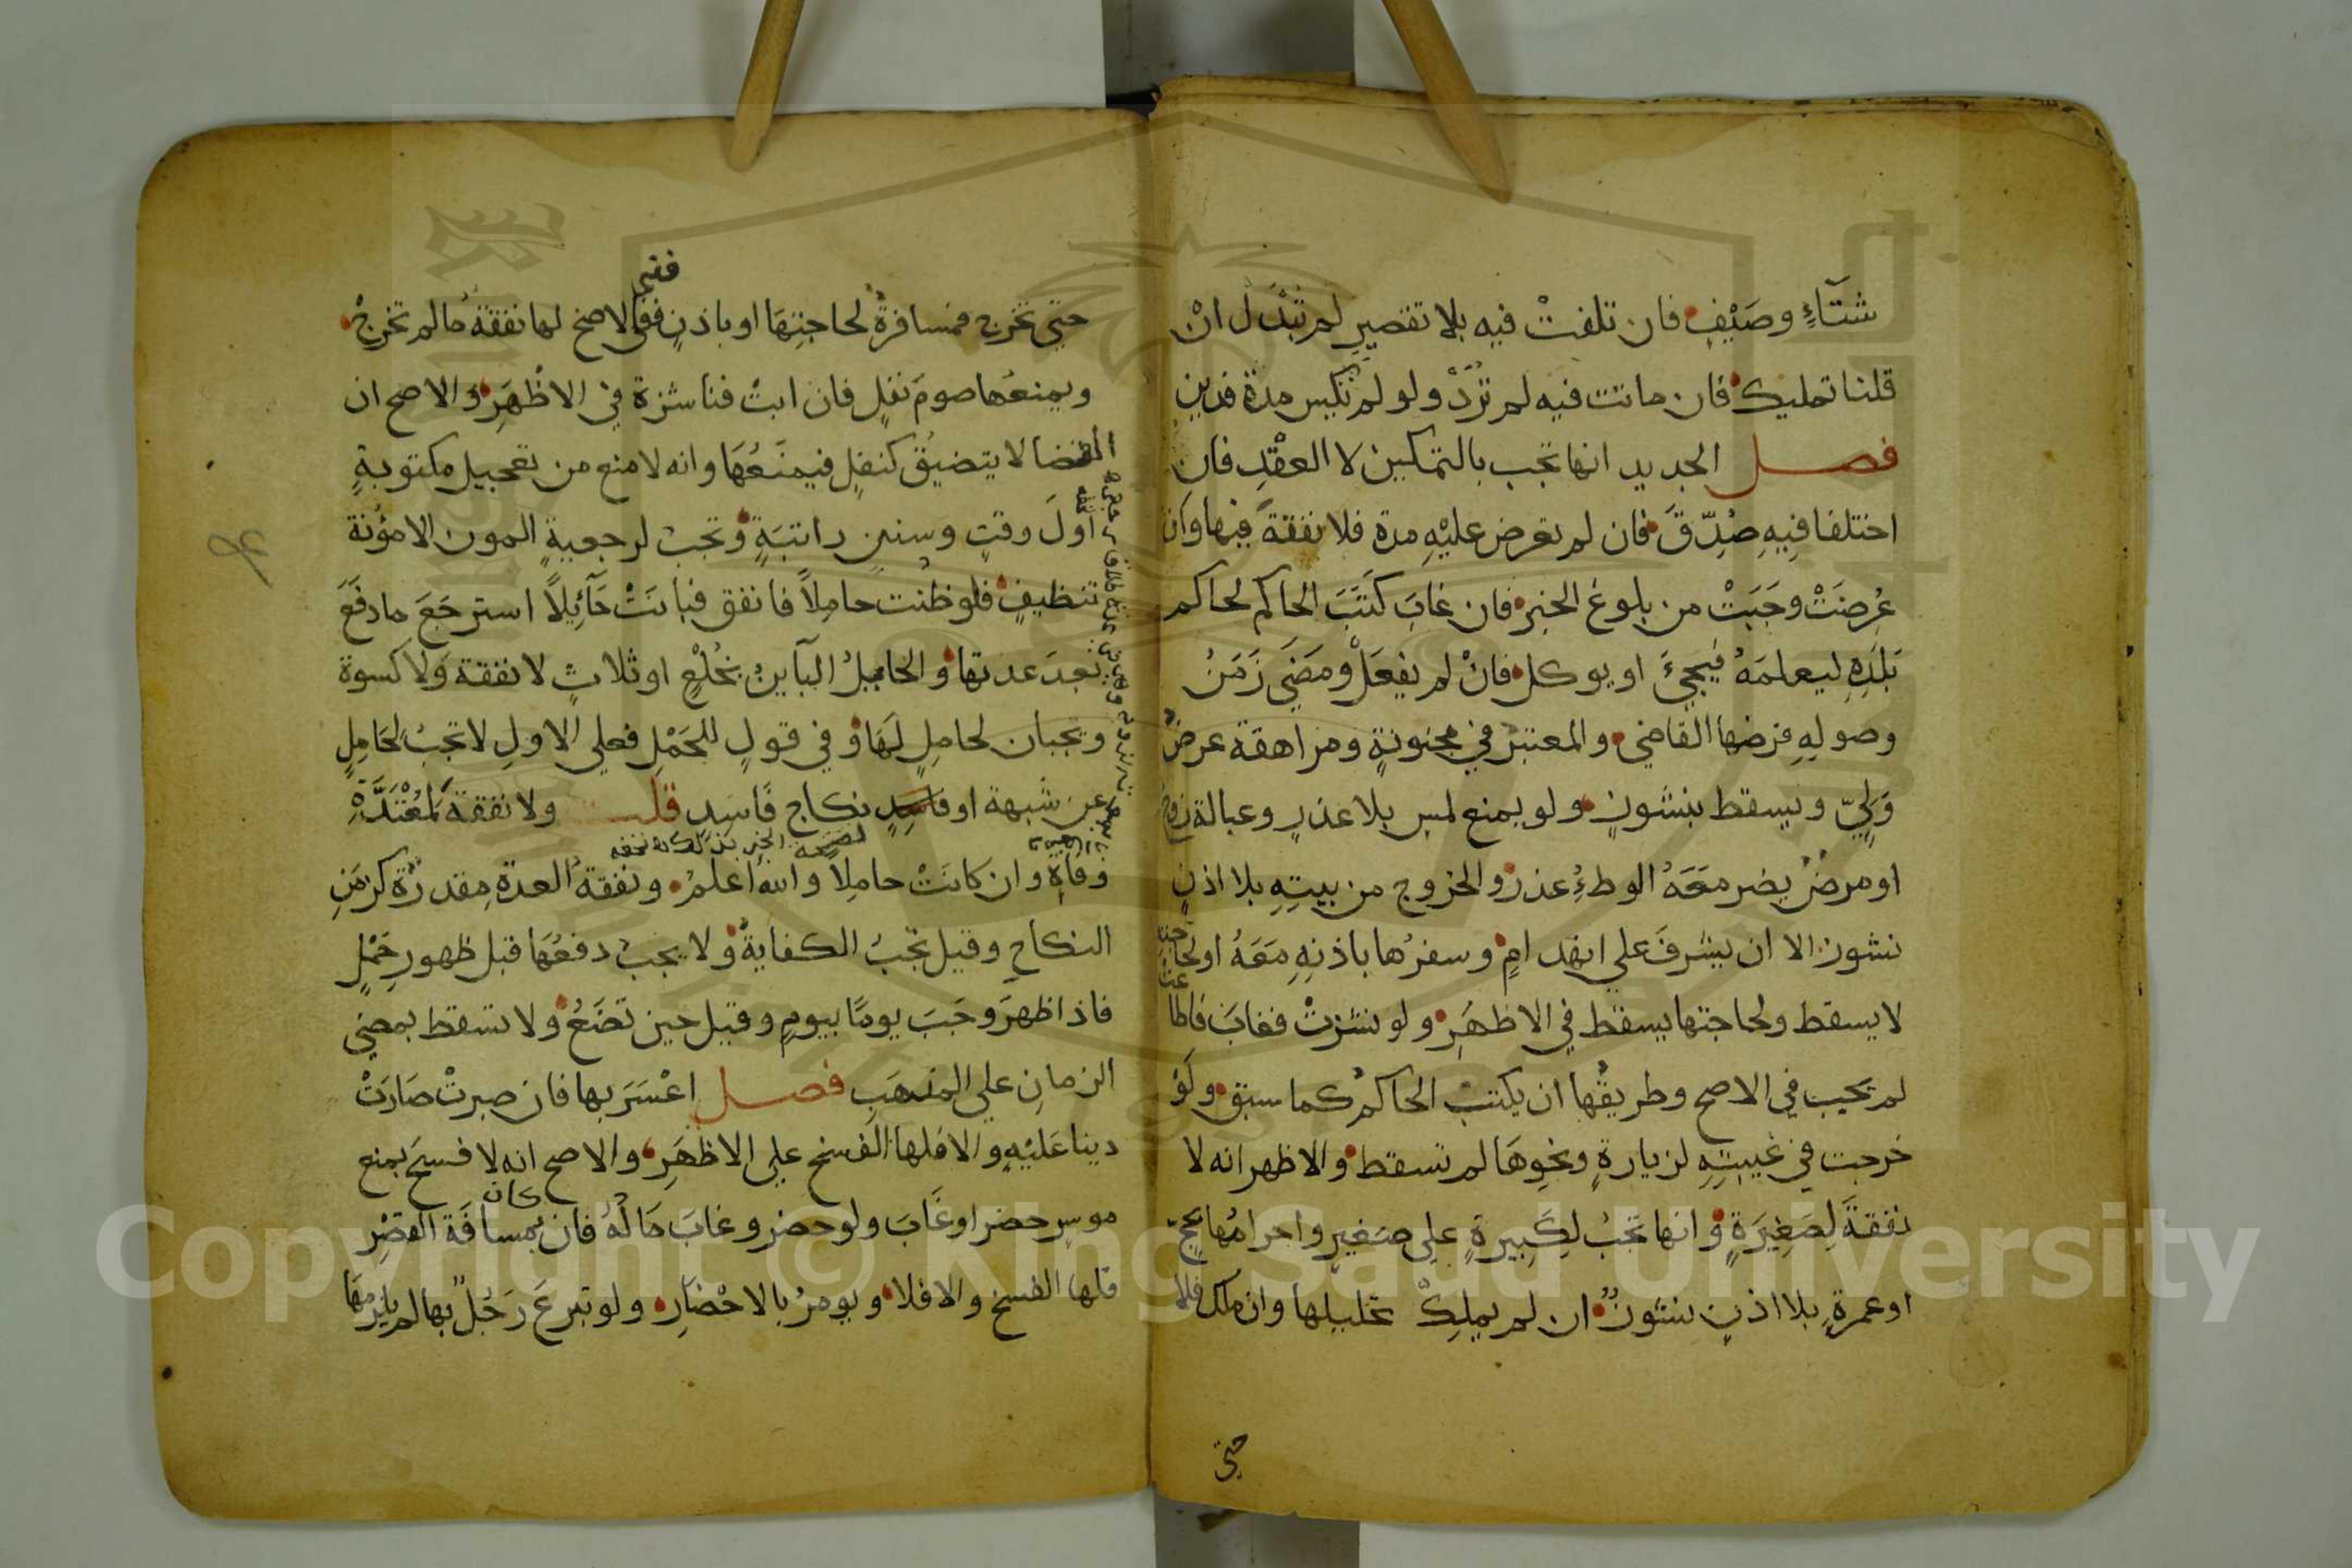 شتآءٍ وصَيْفٍ فان تلفتْ فيه بلا تقصيرٍ لم تبدل ان
قلنا تمليك فان ماتت فيه لم تُرَدّ ولو لم تكس مدة فدين
فصل الجديد انها تجب بالتمكين لا العقْدِ فان
اختلفا فِيهِ صُدِّقَ فان لم تعرض عليْهِ مدة فلا نفقةَ فيها وان
عُرِضَتْ وجَبَتْ من بلوغ الخبر فان غابَ كتَبَ الحاكم لحاكم
بَلَدِهِ ليعلمَهُ فيجيءَ او يوكل فانْ لم يفعَلْ ومضَي زَمَنُ
وصولِهِ فرضها القاضي والمعتبر في مجنونةٍ ومراهقة عرضُ
وَلِيّ وتسقط بنشوزٍ ولو بمنع لمس بلا عذرٍ وعبالة زوج
او مرضٌ يضر معَهُ الوطءُ عذر والخروج من بيتِهِ بلا اذنٍ
نشوز الا ان يشرفَ علي انهدامٍ وسفرُها باذنِهِ معَهُ او لحاجته
لا يسقط ولحاجتها يسقط في الاظهَرِ ولو نشزتْ فغابَ فاطاعت
لم تجب في الاصح وطريقُها ان يكتب الحاكم كما سبق ولَو
خرجت في غيبتِهِ لزيارةٍ ونحوِهَا لم تسقط والاظهر انه لا
نفقةَ لِصَغِيرَةٍ وانها تجبُ لِكَبِيرةٍ علي صَغيرٍ واحرامُها بحجٍّ
او عمرةٍ بلا اذنٍ نشوزٌ ان لم يملِكْ تحليلها وان ملك فلا
حتي
حتي تخرج فمسافرةٌ لحاجتِهَا او باذنٍ ففي الاصح لها نفقةٌ ما لم تخرجْ
ففي
ويمنعُها صومَ نفلٍ فان ابتْ فناشزة في الاظْهَرِ والاصح ان
القضا لا يتضيقُ كنفلٍ فيمنَعُهَا وانه لا منع من تعجيل مكتوبةٍ
أولَ وقتٍ وسننٍ راتبَةٍ وتجبُ لرجعيةٍ المون الا مؤنة
تنظيفٍ فلو ظنت حامِلاً فانفق فبانَتْ حَآئِلاً استرجَعَ ما دفَعَ
بعدَ عدتها والحايلُ البآينُ بخُلْعٍ او ثلاثٍ لا نفقة ولا كسوة
وتجبان لحاملٍ لَهَا وفي قولٍ للحَمْلِ فعلي الاولِ لا تجبُ لحَامِلٍ
عن شبهة او فاسِدٍ نكاح فَاسِدٍ قلت ولا نفقةَ لمُعْتَدَّةِ
وفاةٍ وان كانَتْ حامِلاً والله أعلمُ ونفقةُ العدةِ مقدرَّة كزَمَنِ
النكاحِ وقيل تجبُ الكفايةُ ولا يجبُ دفعُهَا قبل ظهورِ حَمْلٍ
فاذا ظهرَ وجَبَ يومًا بيومٍ وقيل حين تَضَعُ ولا تسقط بمضيِ
الزمانِ علي المذهَبِ فصل اعْسَرَ بها فان صبرتْ صَارَتْ
دينا عَليْهِ والا فلها الفسخ علي الاظهَرِ والاصح انه لا فسخَ بمنع
موسِرٍ حضر او غَابَ ولو حضر وغابَ مَالُهُ فان كان بمسافَة القصْرِ
فلها الفسخ والا فلا ويومرُ بالاحْضَارِ ولو تبرعَ رَجُلٌ بها لم يلزمْهَا